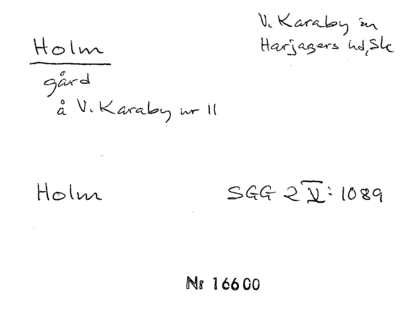 V. Karaby sn
Harjagers hd, Sk
Holm
gård
å V. Karaby nr 11
Holm SGG 2 V: 1089
Nr 16600